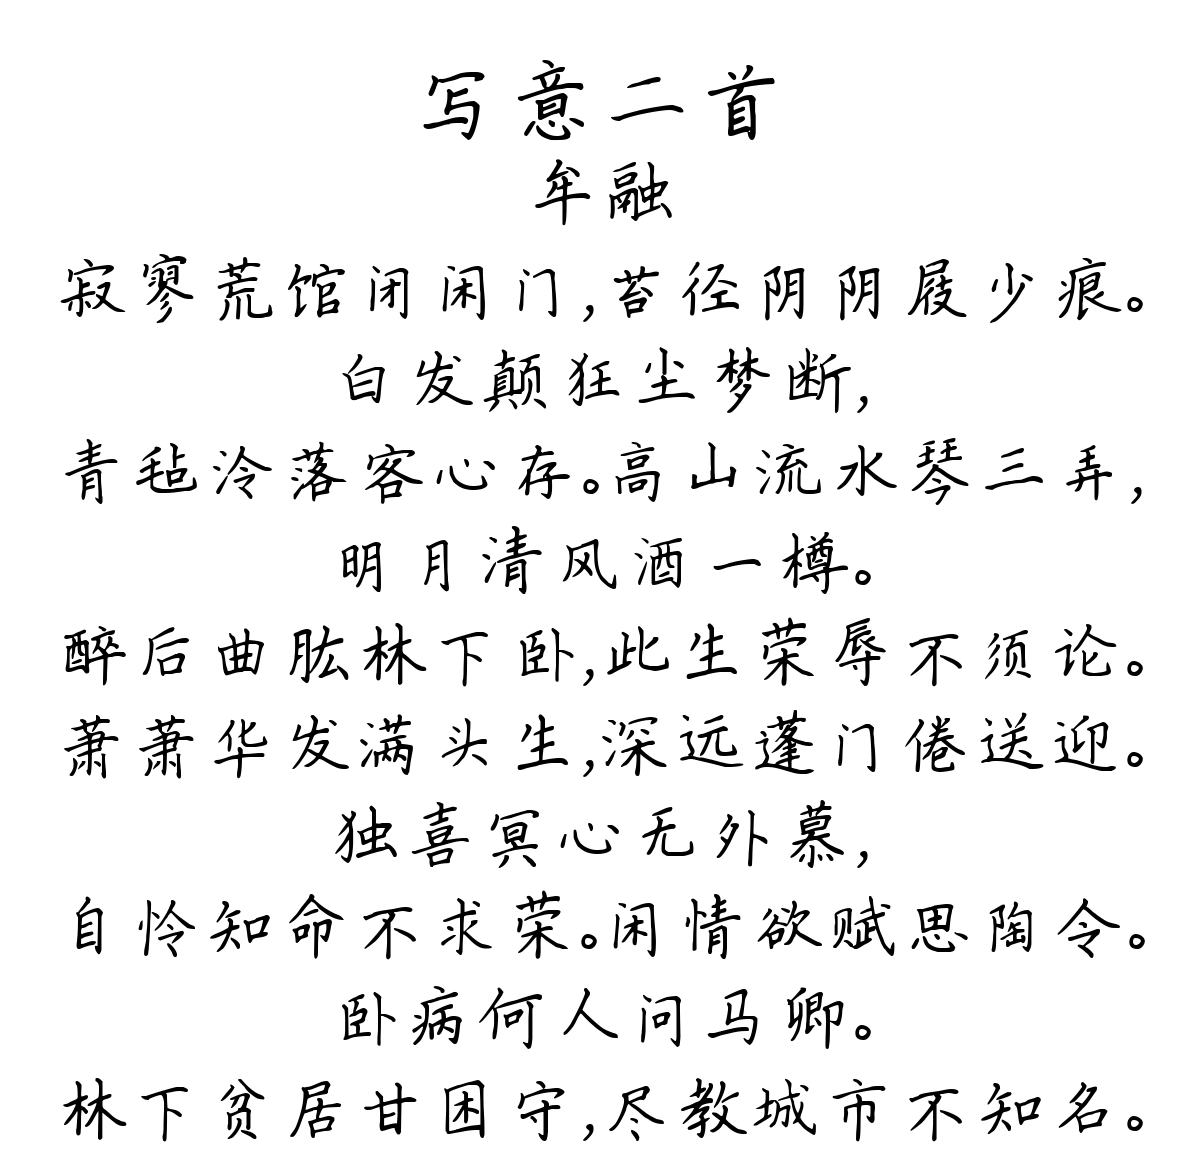 写意二首
牟融
寂寥荒馆闭闲门,苔径阴阴屐少痕。
白发颠狂尘梦断,
青毡泠落客心存。高山流水琴三弄,
明月清风酒一樽。
醉后曲肱林下卧,此生荣辱不须论。
萧萧华发满头生,深远蓬门倦送迎。
独喜冥心无外慕,
自怜知命不求荣。闲情欲赋思陶令。
卧病何人问马卿。
林下贫居甘困守,尽教城市不知名。